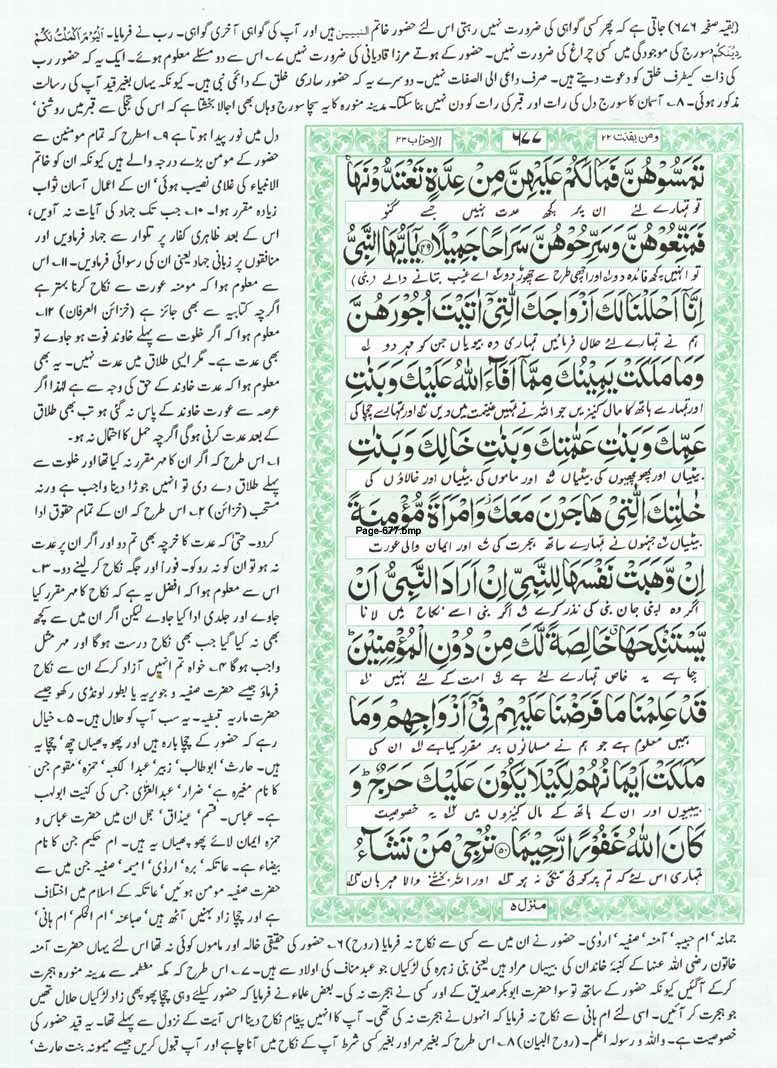 (بقیہ صفحہ ۶۷۶) جاتی ہے کہ پھر کسی گواہی کی ضرورت نہیں رہتی اس لئے حضور خاتم النبیین ہیں اور آپ کی گواہی آخری گواہی۔ رب نے فرمایا۔ اَلْيَوْمَ اَكْمَلْتُ لَكُمْ
دِيْنَكُمْ سورج کی موجودگی میں کسی چراغ کی ضرورت نہیں۔ حضور کے ہوتے مرزا قادیانی کی ضرورت نہیں ۷؎ اس سے دو مسئلے معلوم ہوئے۔ ایک یہ کہ حضور رب
کی ذات کیطرف خلق کو دعوت دیتے ہیں۔ صرف داعی الی الصفات نہیں۔ دوسرے یہ کہ حضور ساری خلق کے دائمی نبی ہیں۔ کیونکہ یہاں بغیر قید آپ کی رسالت
مذکور ہوئی۔ ۸؎ آسمان کا سورج دل کی رات اور قبر کی رات کو دن نہیں بنا سکتا۔ مدینہ منورہ کا یہ سچا سورج وہاں بھی اجالا بخشتا ہے کہ اس کی تجلی سے قبر میں روشنی‘
ومن یقنت ۲۲
۶۷۷
الاحزاب ۳۳
تَمَسُّوْهُنَّ فَمَا لَكُمْ عَلَيْهِنَّ مِنْ عِدَّةٍ تَعْتَدُّوْنَهَا
تو تمہارے لئے ان پر کچھ عدت نہیں جسے گنو
فَمَتِّعُوْهُنَّ وَسَرِّحُوْهُنَّ سَرَاحًا جَمِيْلًا ۴۹ يٰۤاَيُّهَا النَّبِيُّ
تو انہیں کچھ فائدہ دو اور اچھی طرح سے چھوڑ دو اے غیب بتانے والے (نبی)
اِنَّاۤ اَحْلَلْنَا لَكَ اَزْوَاجَكَ الّٰتِيْۤ اٰتَيْتَ اُجُوْرَهُنَّ
ہم نے تمہارے لئے حلال فرمائیں تمہاری وہ بیبیاں جن کو مہر دو
وَمَا مَلَكَتْ يَمِيْنُكَ مِمَّاۤ اَفَآءَ اللّٰهُ عَلَيْكَ وَبَنٰتِ
اور تمہارے ہاتھ کا مال کنیزیں جو اللہ نے تمہیں غنیمت میں دیں اور تمہارے چچا کی
عَمِّكَ وَبَنٰتِ عَمّٰتِكَ وَبَنٰتِ خَالِكَ وَبَنٰتِ
بیٹیاں اور پھوپھیوں کی بیٹیاں اور ماموں کی بیٹیاں اور خالاؤں کی
خٰلٰتِكَ الّٰتِيْ هَاجَرْنَ مَعَكَ وَامْرَاَةً مُّؤْمِنَةً
Page-677.bmp
بیٹیاں جنہوں نے تمہارے ساتھ ہجرت کی اور ایمان والی عورت
اِنْ وَّهَبَتْ نَفْسَهَا لِلنَّبِيِّ اِنْ اَرَادَ النَّبِيُّ اَنْ
اگر وہ اپنی جان نبی کی نذر کرے اگر نبی اسے نکاح میں لانا
يَّسْتَنْكِحَهَا خَالِصَةً لَّكَ مِنْ دُوْنِ الْمُؤْمِنِيْنَ
چاہے یہ خاص تمہارے لئے ہے امت کے لئے نہیں
قَدْ عَلِمْنَا مَا فَرَضْنَا عَلَيْهِمْ فِيْۤ اَزْوَاجِهِمْ وَمَا
ہمیں معلوم ہے جو ہم نے مسلمانوں پر مقرر کیا ہے ان کی
مَلَكَتْ اَيْمَانُهُمْ لِكَيْلَا يَكُوْنَ عَلَيْكَ حَرَجٌ وَ
بیبیوں اور ان کے ہاتھ کے مال کنیزوں میں یہ خصوصیت
كَانَ اللّٰهُ غَفُوْرًا رَّحِيْمًا ۵۰ تُرْجِيْ مَنْ تَشَآءُ
تمہاری اس لئے کہ تم پر کوئی تنگی نہ ہو اور اللہ بخشنے والا مہربان
منزل ۵
دل میں نور پیدا ہوتا ہے ۹؎ اسطرح کہ تمام مومنین سے
حضور کے مومن بڑے درجہ والے ہیں کیونکہ ان کو خاتم
الانبیاء کی غلامی نصیب ہوئی‘ ان کے اعمال آسان ثواب
زیادہ مقرر ہوا۔ ۱۰؎ جب تک جہاد کی آیات نہ آویں،
اس کے بعد ظاہری کفار پر تلوار سے جہاد فرماویں اور
منافقوں پر زبانی جہاد یعنی ان کی رسوائی فرماویں۔ ۱۱؎ اس
سے معلوم ہوا کہ مومنہ عورت سے نکاح کرنا بہتر ہے
اگرچہ کتابیہ سے بھی جائز ہے (خزائن العرفان) ۱۲؎
معلوم ہوا کہ اگر خلوت سے پہلے خاوند فوت ہو جاوے تو
بھی عدت ہے۔ مگر ایسی طلاق میں عدت نہیں۔ یہ بھی
معلوم ہوا کہ عدت خاوند کے حق کی وجہ سے ہے لہٰذا اگر
عرصہ سے عورت خاوند کے پاس نہ گئی ہو تب بھی طلاق
کے بعد عدت کرنی ہوگی اگرچہ حمل کا احتمال نہ ہو۔
۱؎ اس طرح کہ اگر ان کا مہر مقرر نہ کیا تھا اور خلوت سے
پہلے طلاق دے دی تو انہیں جوڑا دینا واجب ہے ورنہ
مستحب (خزائن) ۲؎ اس طرح کہ ان کے تمام حقوق ادا
کردو۔ حتیٰ کہ عدت کا خرچہ بھی تم دو اور اگر ان پر عدت
نہ ہو تو ان کو نہ روکو۔ فوراً اور جگہ نکاح کر لینے دو۔ ۳؎
اس سے معلوم ہوا کہ افضل یہ ہے کہ نکاح کا مہر مقرر کیا
جاوے اور جلدی ادا کیا جاوے لیکن اگر ان میں سے کچھ
بھی نہ کیا گیا جب بھی نکاح درست ہوگا اور مہر مثل
واجب ہوگا ۴؎ خواہ تم انہیں آزاد کرکے ان سے نکاح
فرماؤ جیسے حضرت صفیہ و جویریہ یا بطور لونڈی رکھو جیسے
حضرت ماریہ قبطیہ۔ یہ سب آپ کو حلال ہیں۔ ۵؎ خیال
رہے کہ حضور کے چچا بارہ ہیں اور پھوپھیاں چھ‘ چچا یہ
ہیں۔ حارث‘ ابوطالب‘ زبیر‘ عبدا لکعبہ‘ حمزہ‘ مقوم جن
کا نام مغیرہ ہے‘ ضرار‘ عبدالعزّٰی جس کی کنیت ابولہب
ہے۔ عباس۔ قسم‘ عیذاق‘ جمل ان میں حضرت عباس و
حمزہ ایمان لائے پھوپھیاں یہ ہیں۔ ام حکیم جن کا نام
بیضاء ہے۔ عاتکہ‘ برہ‘ اروٰی‘ امیمہ‘ صفیہ جن میں سے
حضرت صفیہ مومن ہوئیں‘ عاتکہ کے اسلام میں اختلاف
ہے اور چچا زاد بہنیں آٹھ ہیں‘ صباعنہ‘ ام الحکم‘ ام ہانی‘
جمانہ‘ ام حبیبہ‘ آمنہ‘ صفیہ‘ اروٰی۔ حضور نے ان میں سے کسی سے نکاح نہ فرمایا (روح) ۶؎ حضور کی حقیقی خالہ اور ماموں کوئی نہ تھا اس لئے یہاں حضرت آمنہ
خاتون رضی اللہ عنہا کے کنبہ خاندان کی بیبیاں مراد ہیں یعنی بنی زہرہ کی لڑکیاں جو عبد مناف کی اولاد سے ہیں۔ ۷؎ اس طرح کہ مکہ معظمہ سے مدینہ منورہ ہجرت
کرکے آگئیں کیونکہ حضور کے ساتھ تو سوا حضرت ابوبکر صدیق کے اور کسی نے ہجرت نہ کی۔ بعض علماء نے فرمایا کہ حضور کیلئے وہی چچا پھوپھی زاد لڑکیاں حلال تھیں
جو ہجرت کر آئیں۔ اسی لئے ام ہانی سے نکاح نہ فرمایا کہ انہوں نے ہجرت نہ کی تھی۔ آپ کا انہیں پیغام نکاح دینا اس آیت کے نزول سے پہلے تھا۔ یہ قید حضور کی
خصوصیت ہے۔ واللہ و رسولہ اعلم۔ (روح البیان) ۸؎ اس طرح کہ بغیر مہر اور بغیر کسی شرط آپ کے نکاح میں آنا چاہے اور آپ قبول کریں جیسے میمونہ بنت حارث‘